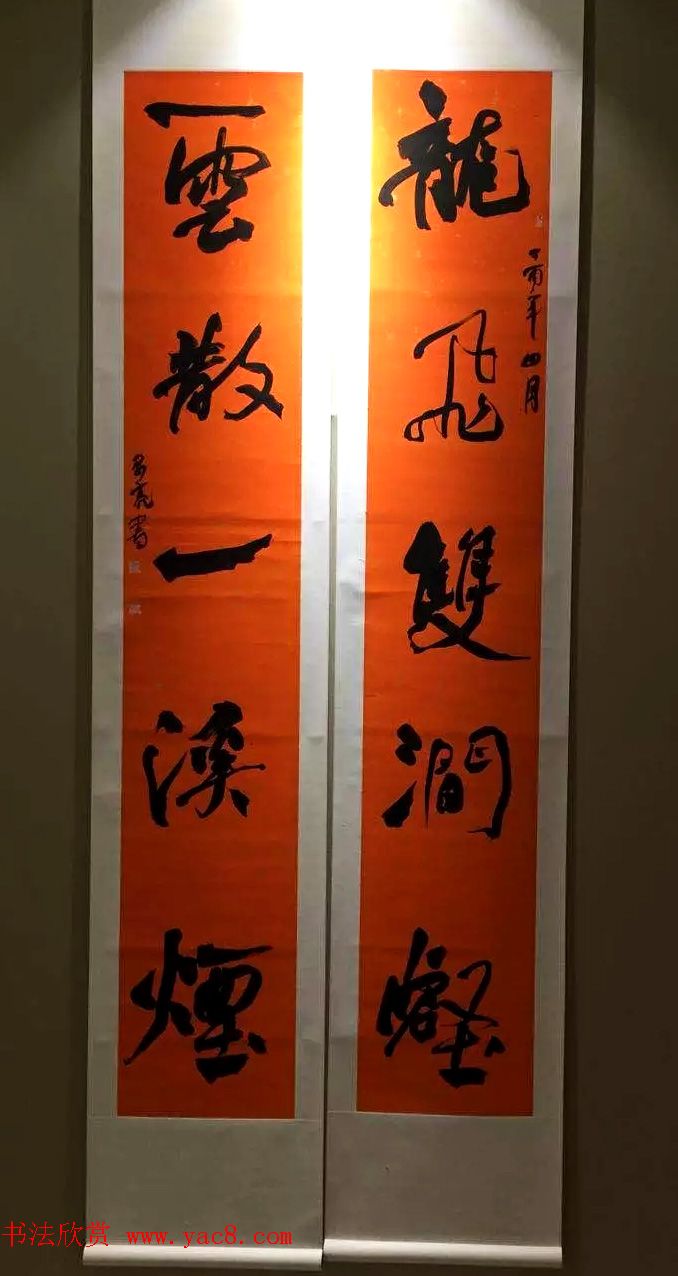 龍飛雙澗壑
年四月
雲散一溪煙
書
书法欣赏 www.yac8.com